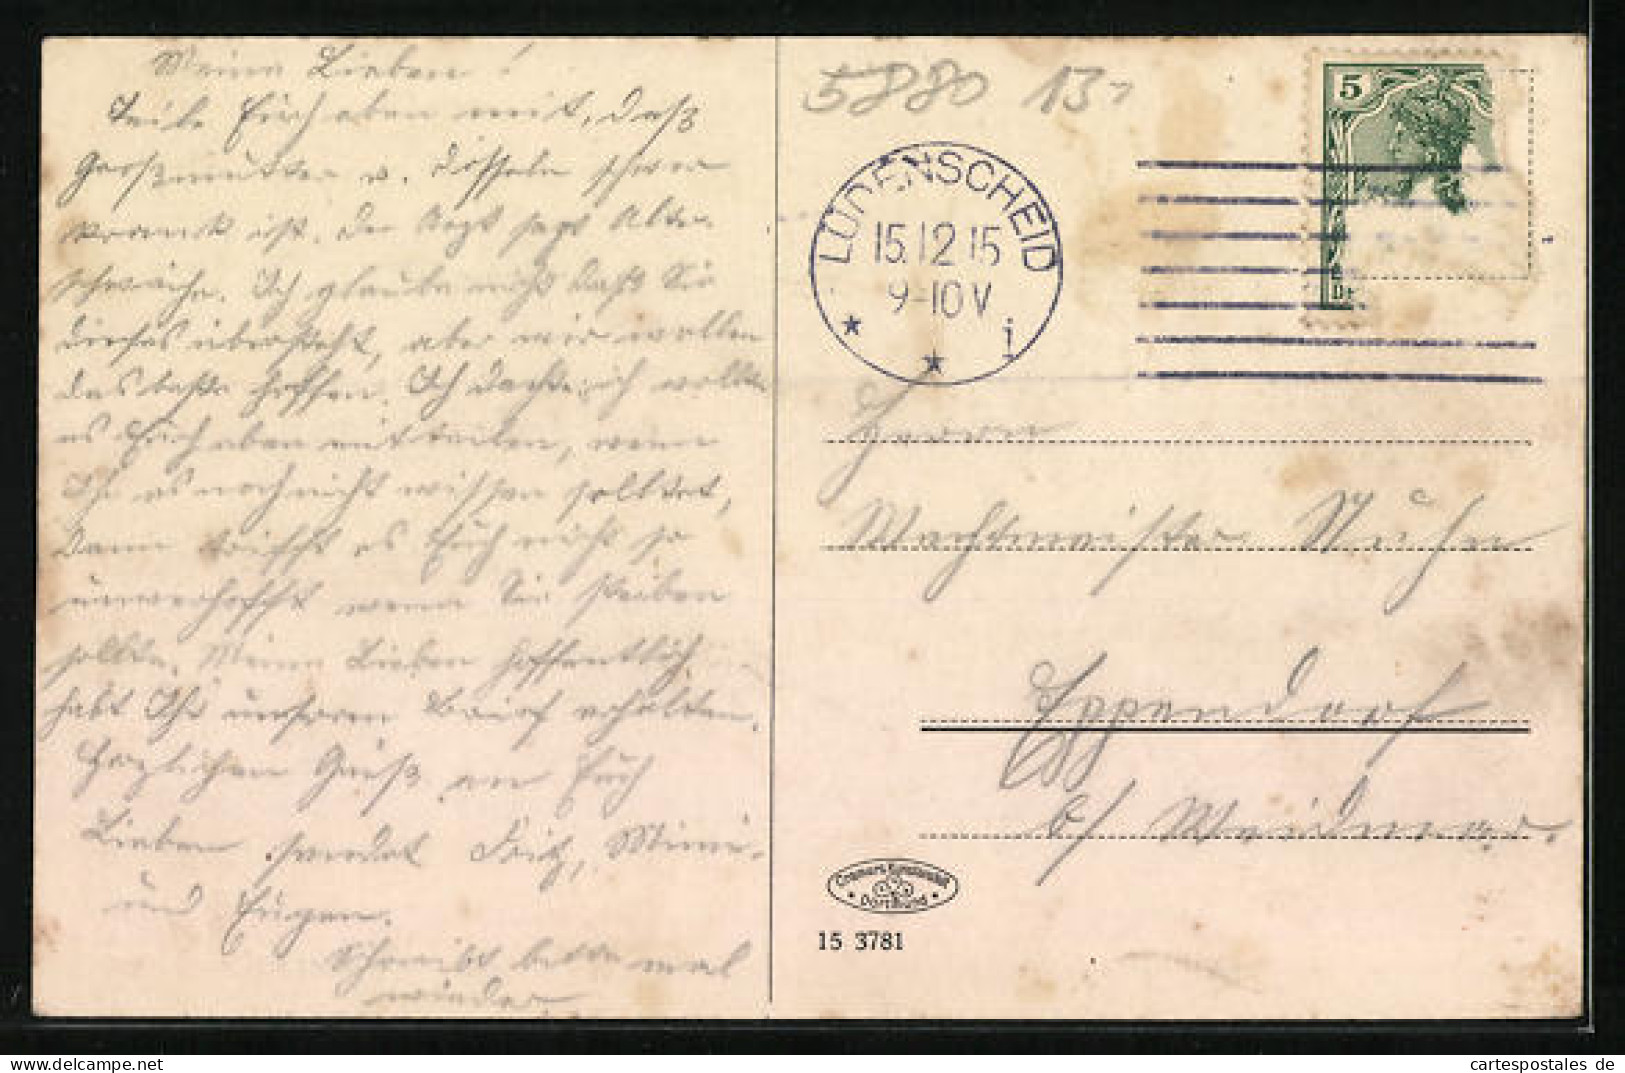 Meine Lieben!
Teile Euch eben mit, daß
Großmutter v. Düsseln schwer
krank ist. Der Arzt sagt Alters
schwäche. Ich glaube nicht daß Sie
dieses übersteht, aber wir wollen
das beste hoffen. Ich dachte ich wollte
es Euch eben mitteilen, wenn
Ihr es noch nicht wissen solltet,
Dann trifft es Euch nicht so
unverhofft wenn Sie sterben
sollte. Meine Lieben hoffentlich
habt Ihr unseren Brief erhalten.
Herzlichen Gruß an Euch
Lieben sendet Fritz, Mimi
und Eugen.
Schreibt bitte mal
wieder
5880 13,-
5
LÜDENSCHEID
15.12.15
9-10V
* * i
Herrn
Wachtmeister Kühn
Eppendorf
b/ Weidmar.
Cramers Kunstanstalt
Dortmund
15 3781
cartespostales de